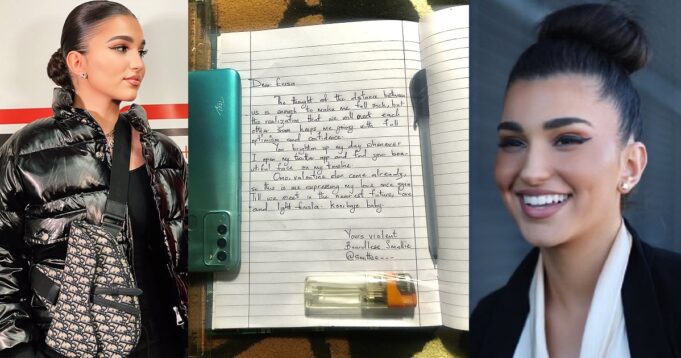 Dear Enisa
The thought of the distance between
us is enough to make me fall sick, but
the realization that we will meet each
other soon keeps me going with full
optimism and confidence.
You brighten up my day whenever
I open my twitter app and find your beau-
tiful face on my timeline.
Omo, valentine don come already,
so this is me expressing my love once again
Till we meet in the nearest future, love
and light baby.
Yours violent
Boundless
itel